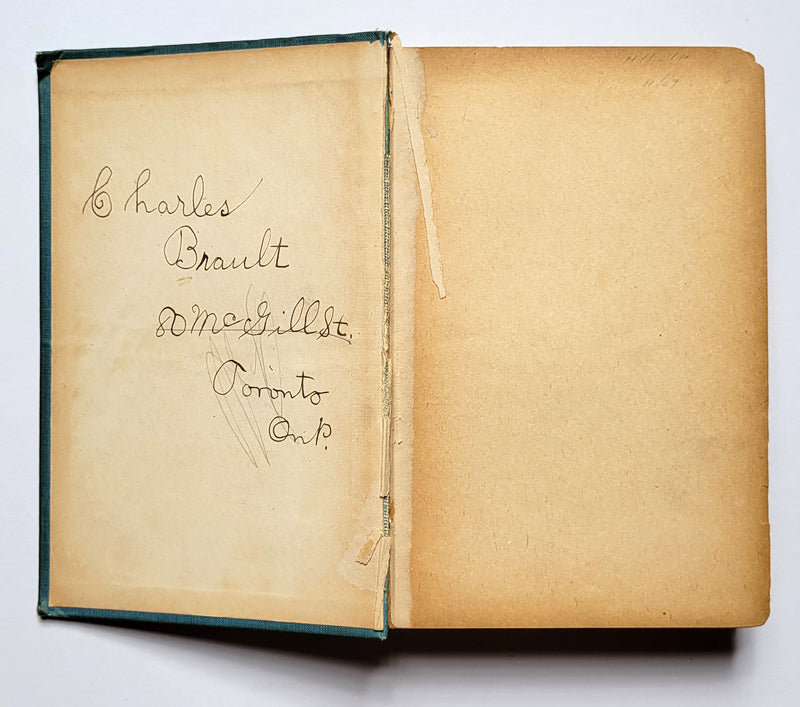 Charles
Brault
80 McGill St.
Toronto
Ont.